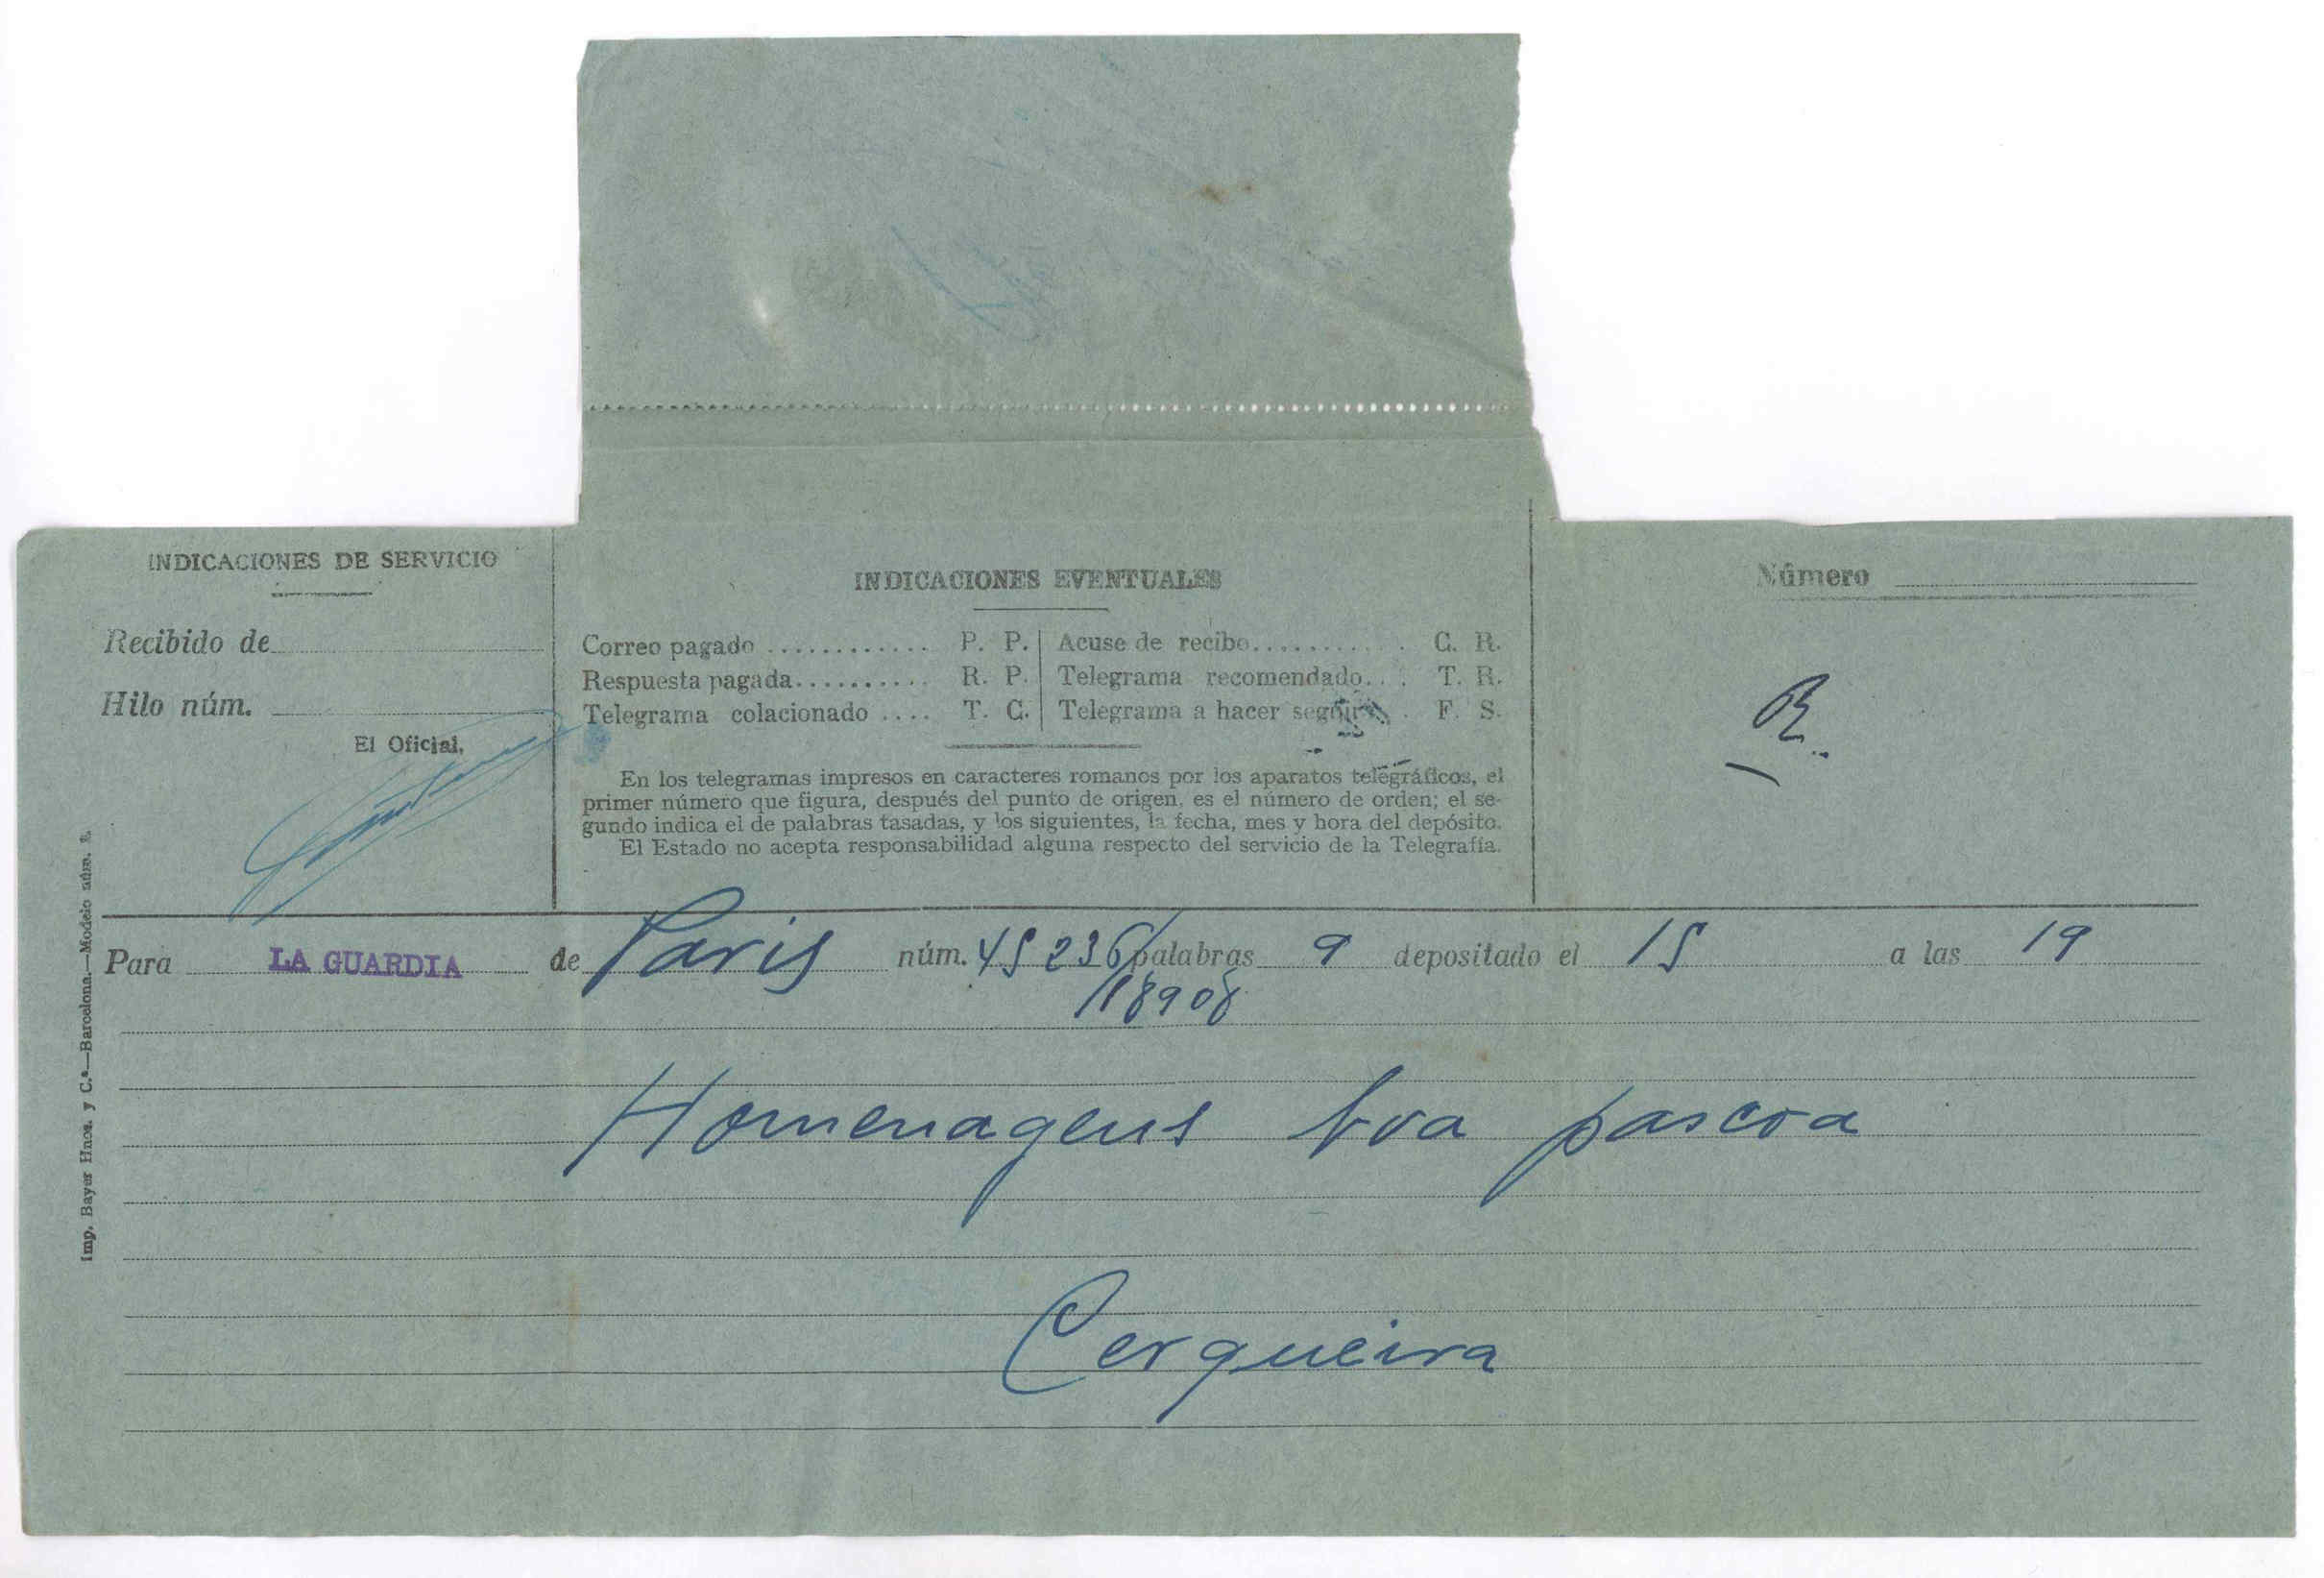 INDICACIONES DE SERVICIO
Recibido de
Hilo núm.
El Oficial,
INDICACIONES EVENTUALES
Correo pagado ............ P. P.
Respuesta pagada.......... R. P.
Telegrama colacionado .... T. C.
Acuse de recibo........... C. R.
Telegrama recomendado... T. R.
Telegrama a hacer seguir . F. S.
En los telegramas impresos en caracteres romanos por los aparatos telegráficos, el
primer número que figura, después del punto de origen, es el número de orden; el se-
gundo indica el de palabras tasadas, y los siguientes, la fecha, mes y hora del depósito.
El Estado no acepta responsabilidad alguna respecto del servicio de la Telegrafía.
Número
Imp. Bayer Hnos. y C.ª—Barcelona.—Modelo núm.
Para LA GUARDIA de Paris núm. 45236/ palabras 9 depositado el 15 a las 19
18908
Homenagens boa pascoa
Cerqueira